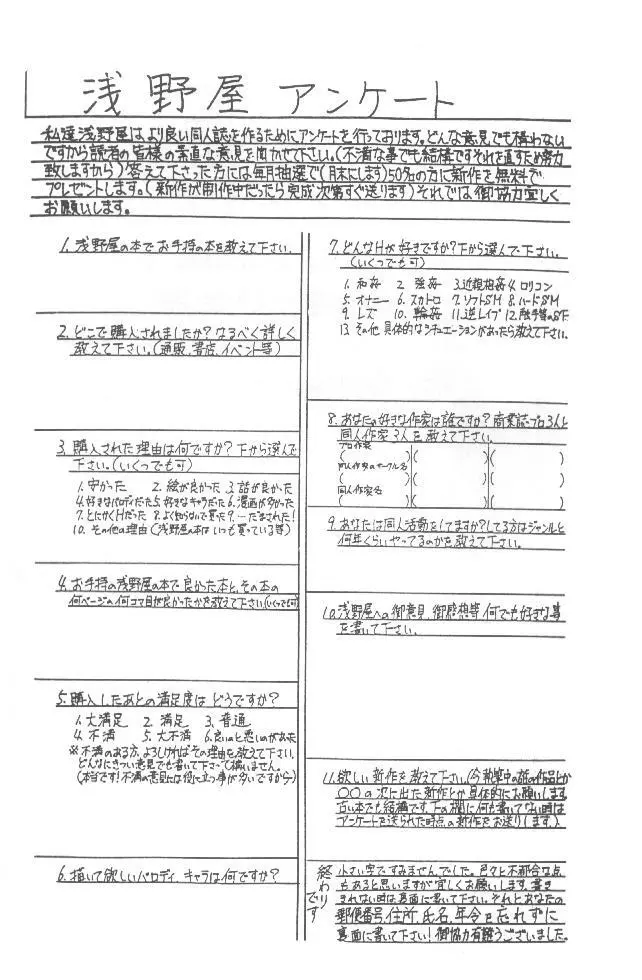 浅野屋 アンケート
私達浅野屋はより良い同人誌を作るためにアンケートを行っております。どんな意見でも構わない
ですから読者の皆様の素直な意見を聞かせて下さい。(不満な事でも結構ですそれを直すため努力
致しますから)答えて下さった方には毎月抽選で(月末にします)50名の方に新作を無料で
プレゼントします。(新作が制作中だったら完成次第すぐ送ります)それでは御協力宜しく
お願いします。
1. 浅野屋の本でお手持の本を教えて下さい.
2. どこで購入されましたか?なるべく詳しく
教えて下さい。(通販、書店、イベント等)
3. 購入された理由は何ですか?下から選んで
下さい。(いくつでも可)
1. 安かった 2. 絵が良かった 3. 話が良かった
4. 好きなパロディだった 5. 好きなキャラだった 6. 漫画が多かった
7. とにかくHだった 8. よく知らないで買った 9. …だまされた!
10. その他の理由(浅野屋の本はいつも買っている等)
4. お手持の浅野屋の本で良かった本と、その本の
何ページの何コマ目が良かったかを教えて下さい(いくつでも可)
5. 購入したあとの満足度はどうですか?
1. 大満足 2. 満足 3. 普通
4. 不満 5. 大不満 6. 良いのと悪いのがあった
※不満のある方、よろしければその理由を教えて下さい.
どんなにきつい意見でも書いて下さって構いません。
(本当です!不満の意見には役に立つ事が多いですから)
6. 描いて欲しいパロディ、キャラは何ですか?
7. どんなHが好きですか?下から選んで下さい。
(いくつでも可)
1. 和姦 2. 強姦 3. 近親相姦 4. ロリコン
5. オナニー 6. スカトロ 7. ソフトSM 8. ハードSM
9. レズ 10. 輪姦 11. 逆レイプ 12. 触手等のSF
13. その他 具体的なシチュエーションがあったら教えて下さい.
8. あなたの好きな作家は誰ですか?商業誌・プロ3人と
同人作家3人を教えて下さい.
プロ作家
( )( )( )
同人作家のサークル名
( )( )( )
同人作家名
( )( )( )
9. あなたは同人活動をしてますか?してる方はジャンルと
何年くらいやってるのかを教えて下さい.
10. 浅野屋への御意見、御感想等何でも好きな事
を書いて下さい.
11. 欲しい新作を教えて下さい.(今執筆中の の作品とか
〇〇の次に出た新作とか具体的にお願いします
古い本でも結構です.下の欄に何も書いてない時は
アンケートを送られた時点の新作をお送りします.)
終わりです
小さい字ですみませんでした。色々と不都合な点
もあると思いますが宜しくお願いします。書き
きれない時は裏面に書いて下さい。それとあなたの
郵便番号、住所、氏名、年令を忘れずに
裏面に書いて下さい!御協力有難うございました。